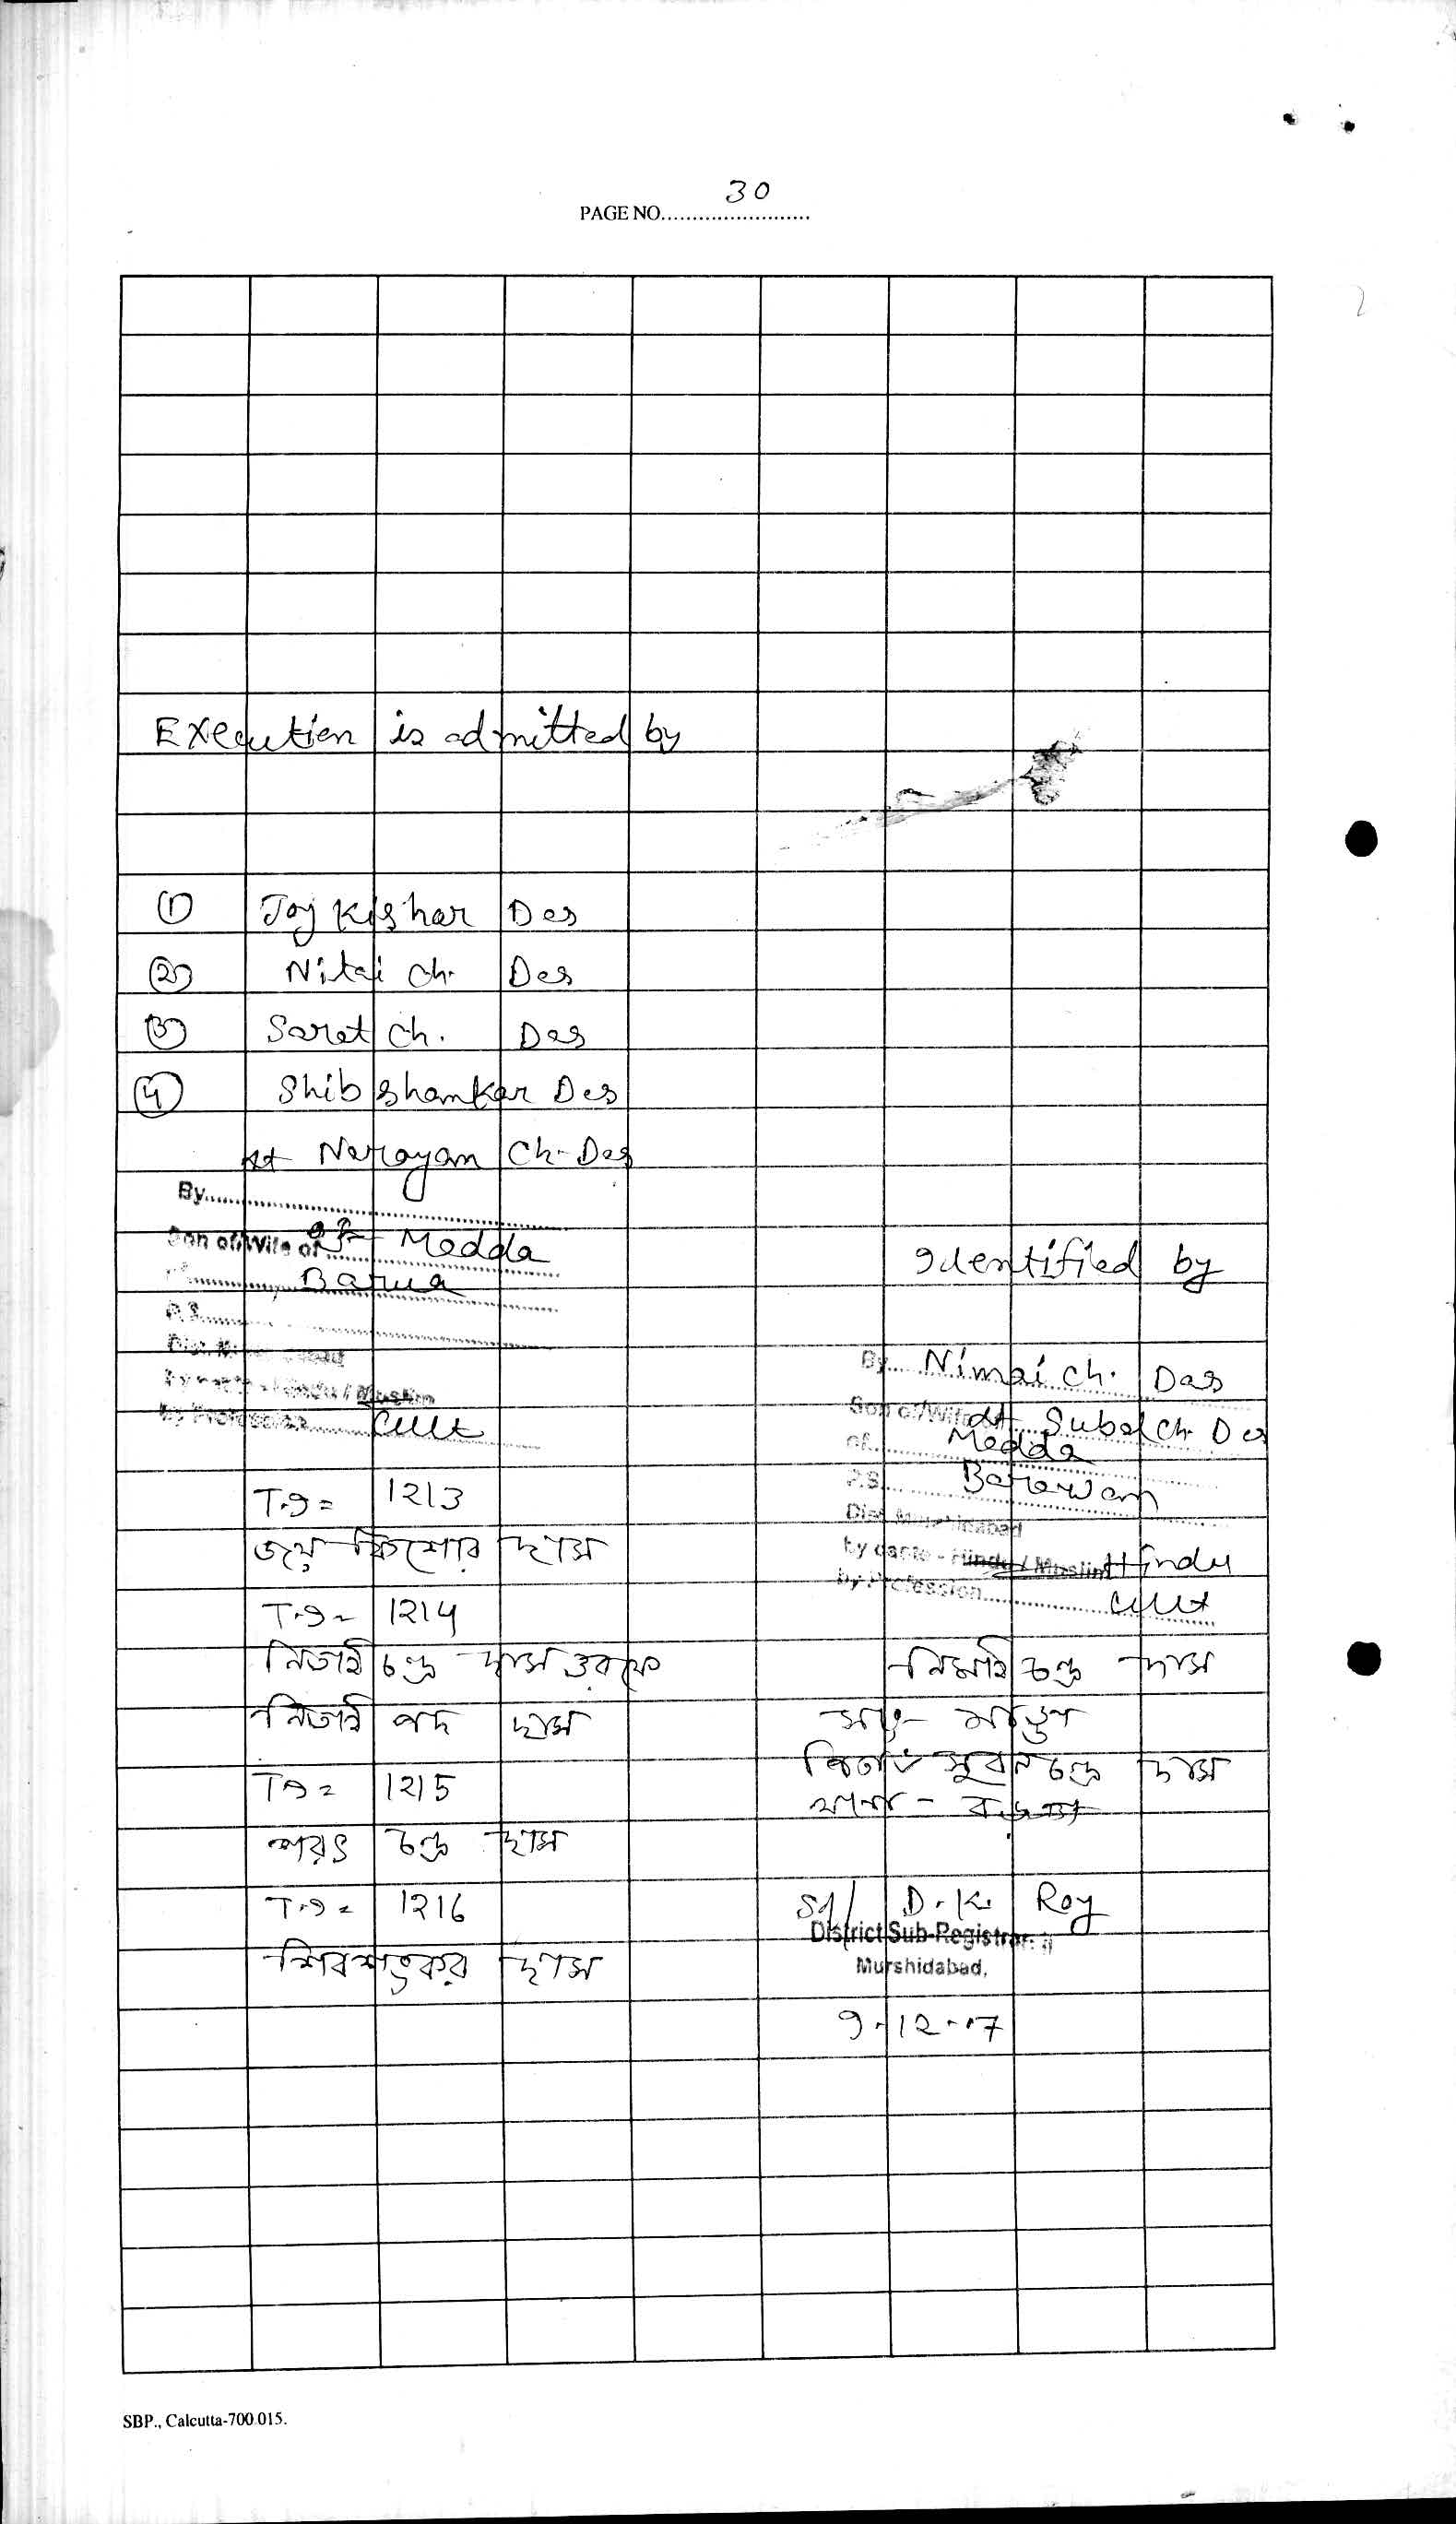 30
PAGE NO.........................
Execution is admitted by
① Joy Kishar Das
② Nitai Ch. Das
③ Sarat Ch. Das
④ Shib Shankar Das
Narayan Ch. Das
By
Son of/Wife of
of Medda
Barua
P.S.
Dist.
Hindu / Muslim
by Profession Cult
T.I = 1213
জয় কিশোর দাস
T.I = 1214
নিতাই চন্দ্র দাস ওরফে
নিতাই পদ দাস
T.I = 1215
শরৎ চন্দ্র দাস
T.I = 1216
শিবশঙ্কর দাস
Identified by
By Nimai Ch. Das
Son of/Wife Subal Ch. Das
of Medda
P.S. Barawan
Dist. Murshidabad
by caste - Hindu / Muslim Hindu
by Profession Cult
নিমাই চন্দ্র দাস
পিতা সুবল চন্দ্র দাস
থানা -
Sd/ D. K. Roy
District Sub-Registrar II
Murshidabad.
9-12-07
SBP., Calcutta-700 015.